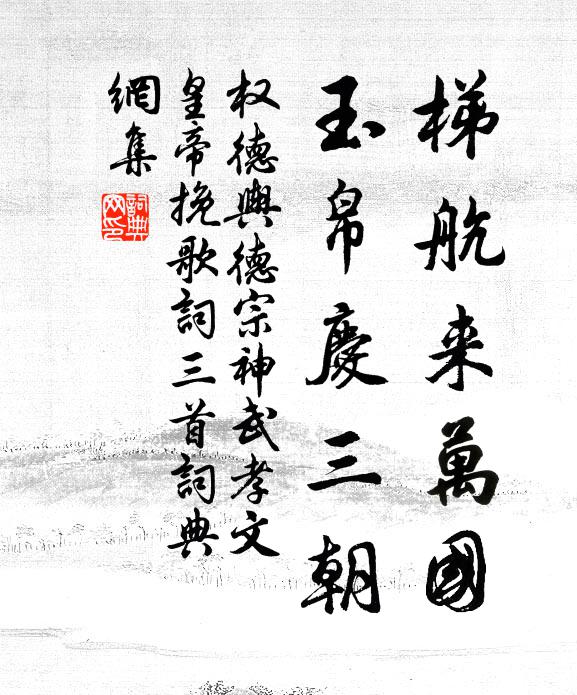 梯航来萬國
玉帛慶三朝
权德輿德宗神武孝文
皇帝挽歌詞三首詞典
網集
詞典
网印